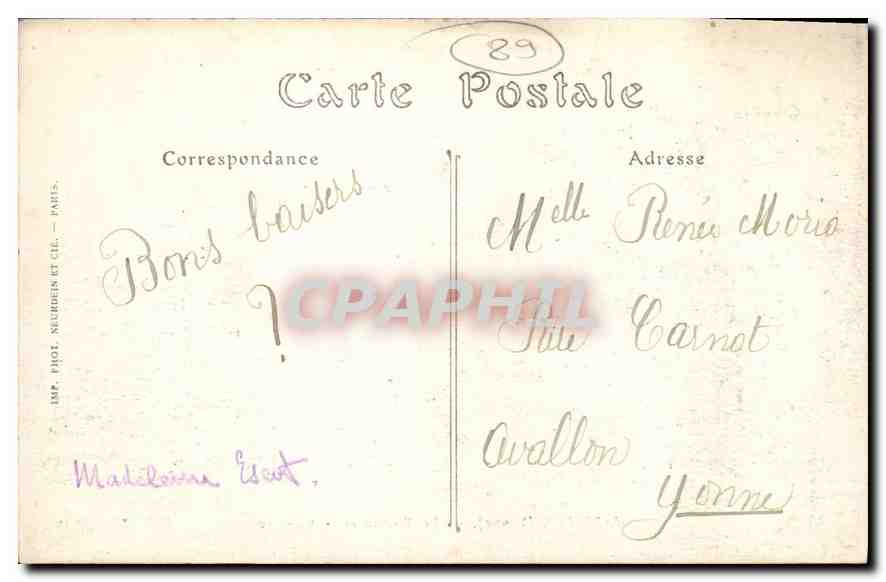 89
Carte Postale
Correspondance
Adresse
Bons baisers
?
Madeleine
Melle Renée Morio
Carnot
Avallon
Yonne
IMP. PHOT. NEURDEIN ET CIE. — PARIS.
CPAPHIL